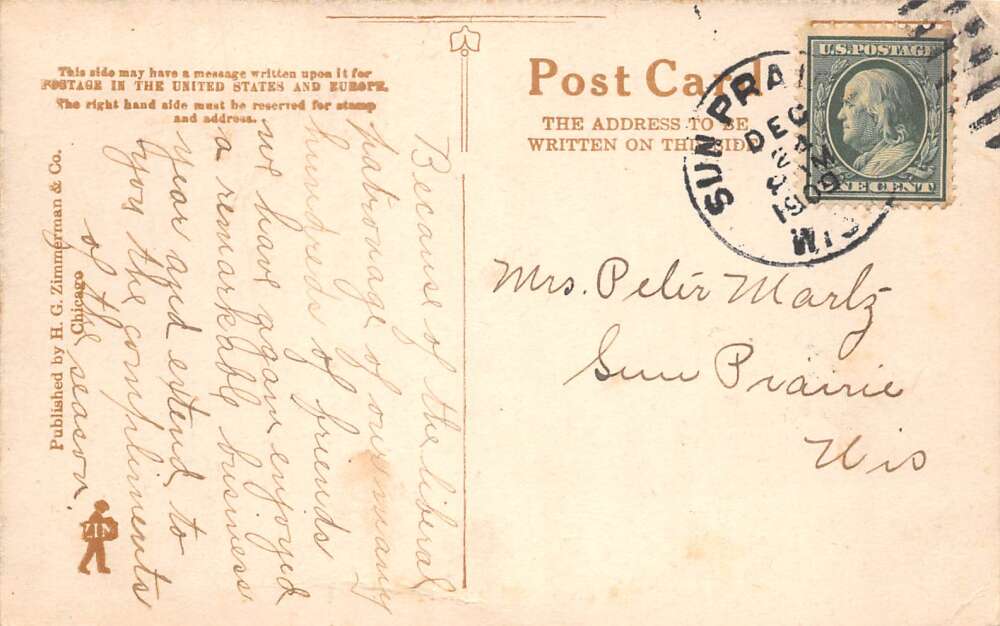 This side may have a message written upon it for
POSTAGE IN THE UNITED STATES AND EUROPE.
The right hand side must be reserved for stamp
and address.
Published by H. G. Zimmerman & Co.
Chicago
ZIM
Because of the liberal
patronage of our many
hundreds of friends
we have again enjoyed
a remarkable business
year and extend to
you the compliments
of the season.
Post Card
THE ADDRESS TO BE
WRITTEN ON THIS SIDE
SUN PRAI
DEC
24
M
1909
WIS
U.S. POSTAGE
ONE CENT
Mrs. Peter Martz
Sun Prairie
Wis